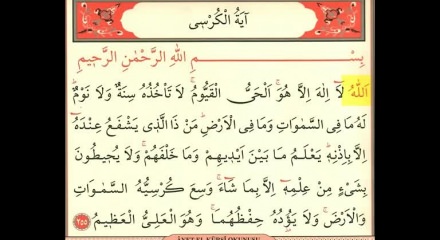 اٰيَةُ الْكُرْسِى
بِسْــــــــمِ اللّٰهِ الرَّحْمٰنِ الرَّحٖيمِ
اَللّٰهُ لَٓا اِلٰهَ اِلَّا هُوَۚ اَلْحَىُّ الْقَيُّومُۚ لَا تَاْخُذُهُ سِنَةٌ وَلَا نَوْمٌۜ
لَهُ مَا فِى السَّمٰوَاتِ وَمَا فِى الْاَرْضِۜ مَنْ ذَا الَّذٖى يَشْفَعُ عِنْدَهُٓ
اِلَّا بِاِذْنِهٖۜ يَعْلَمُ مَا بَيْنَ اَيْدٖيهِمْ وَمَا خَلْفَهُمْۚ وَلَا يُحٖيطُونَ
بِشَىْءٍ مِنْ عِلْمِهٖٓ اِلَّا بِمَا شَٓاءَۚ وَسِعَ كُرْسِيُّهُ السَّمٰوَاتِ
وَالْاَرْضَۚ وَلَا يَؤُ۫دُهُ حِفْظُهُمَاۚ وَهُوَ الْعَلِىُّ الْعَظٖيمُ ﴿٢٥٥﴾
AYET EL KÜRSİ OKUNUŞU